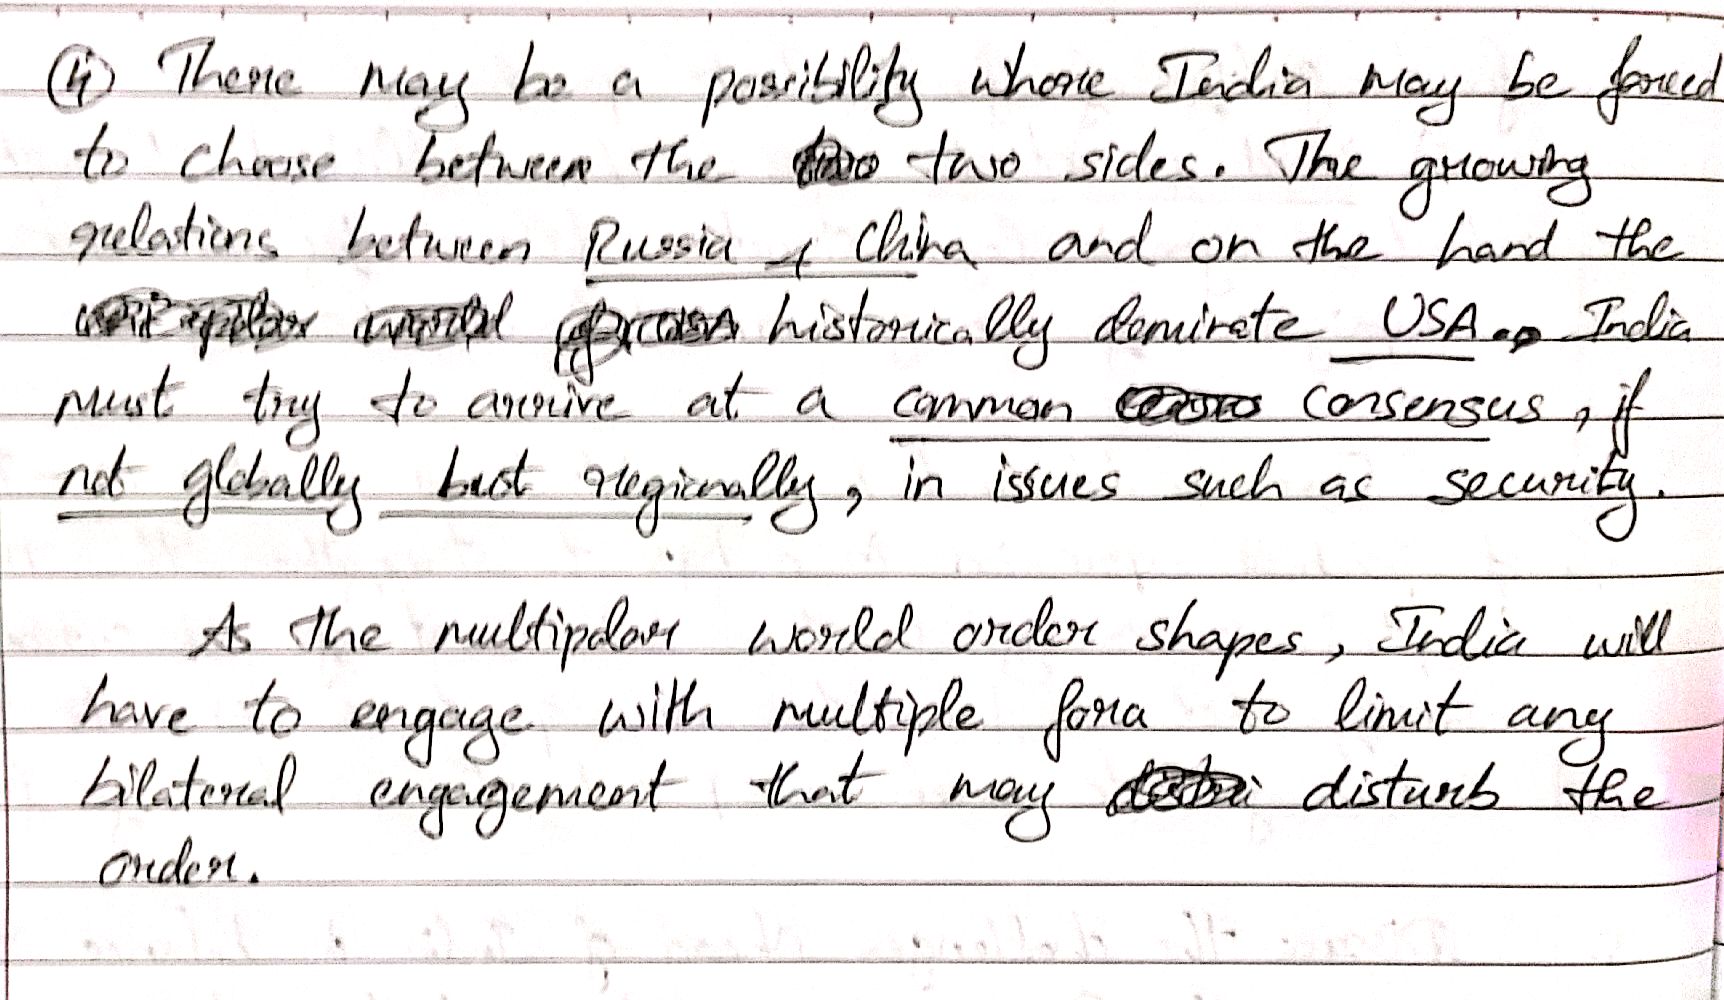 ④ There may be a possibility where India may be forced
to choose between the two sides. The growing
relations between Russia & China and on the hand the
historically dominate USA. India
must try to arrive at a common consensus, if
not globally but regionally, in issues such as security.
As the multipolar world order shapes, India will
have to engage with multiple fora to limit any
bilateral engagement that may disturb the
order.